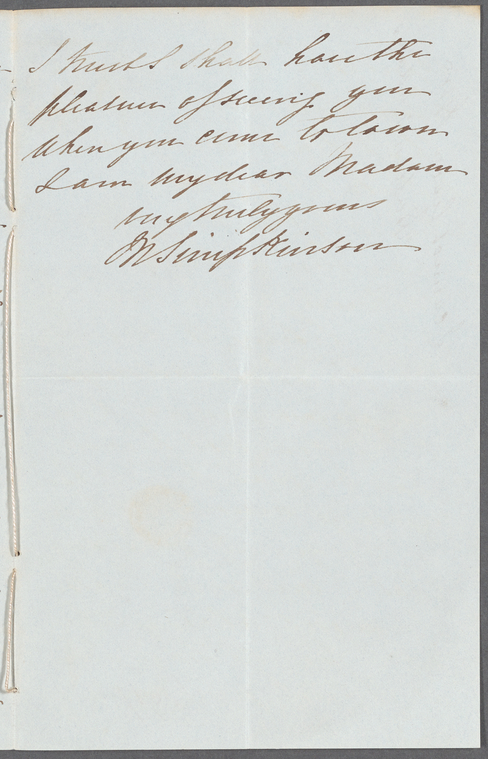 I trust I shall have the
pleasure of seeing you
when you come to town
I am my dear Madam
very truly yours
Simpkinson